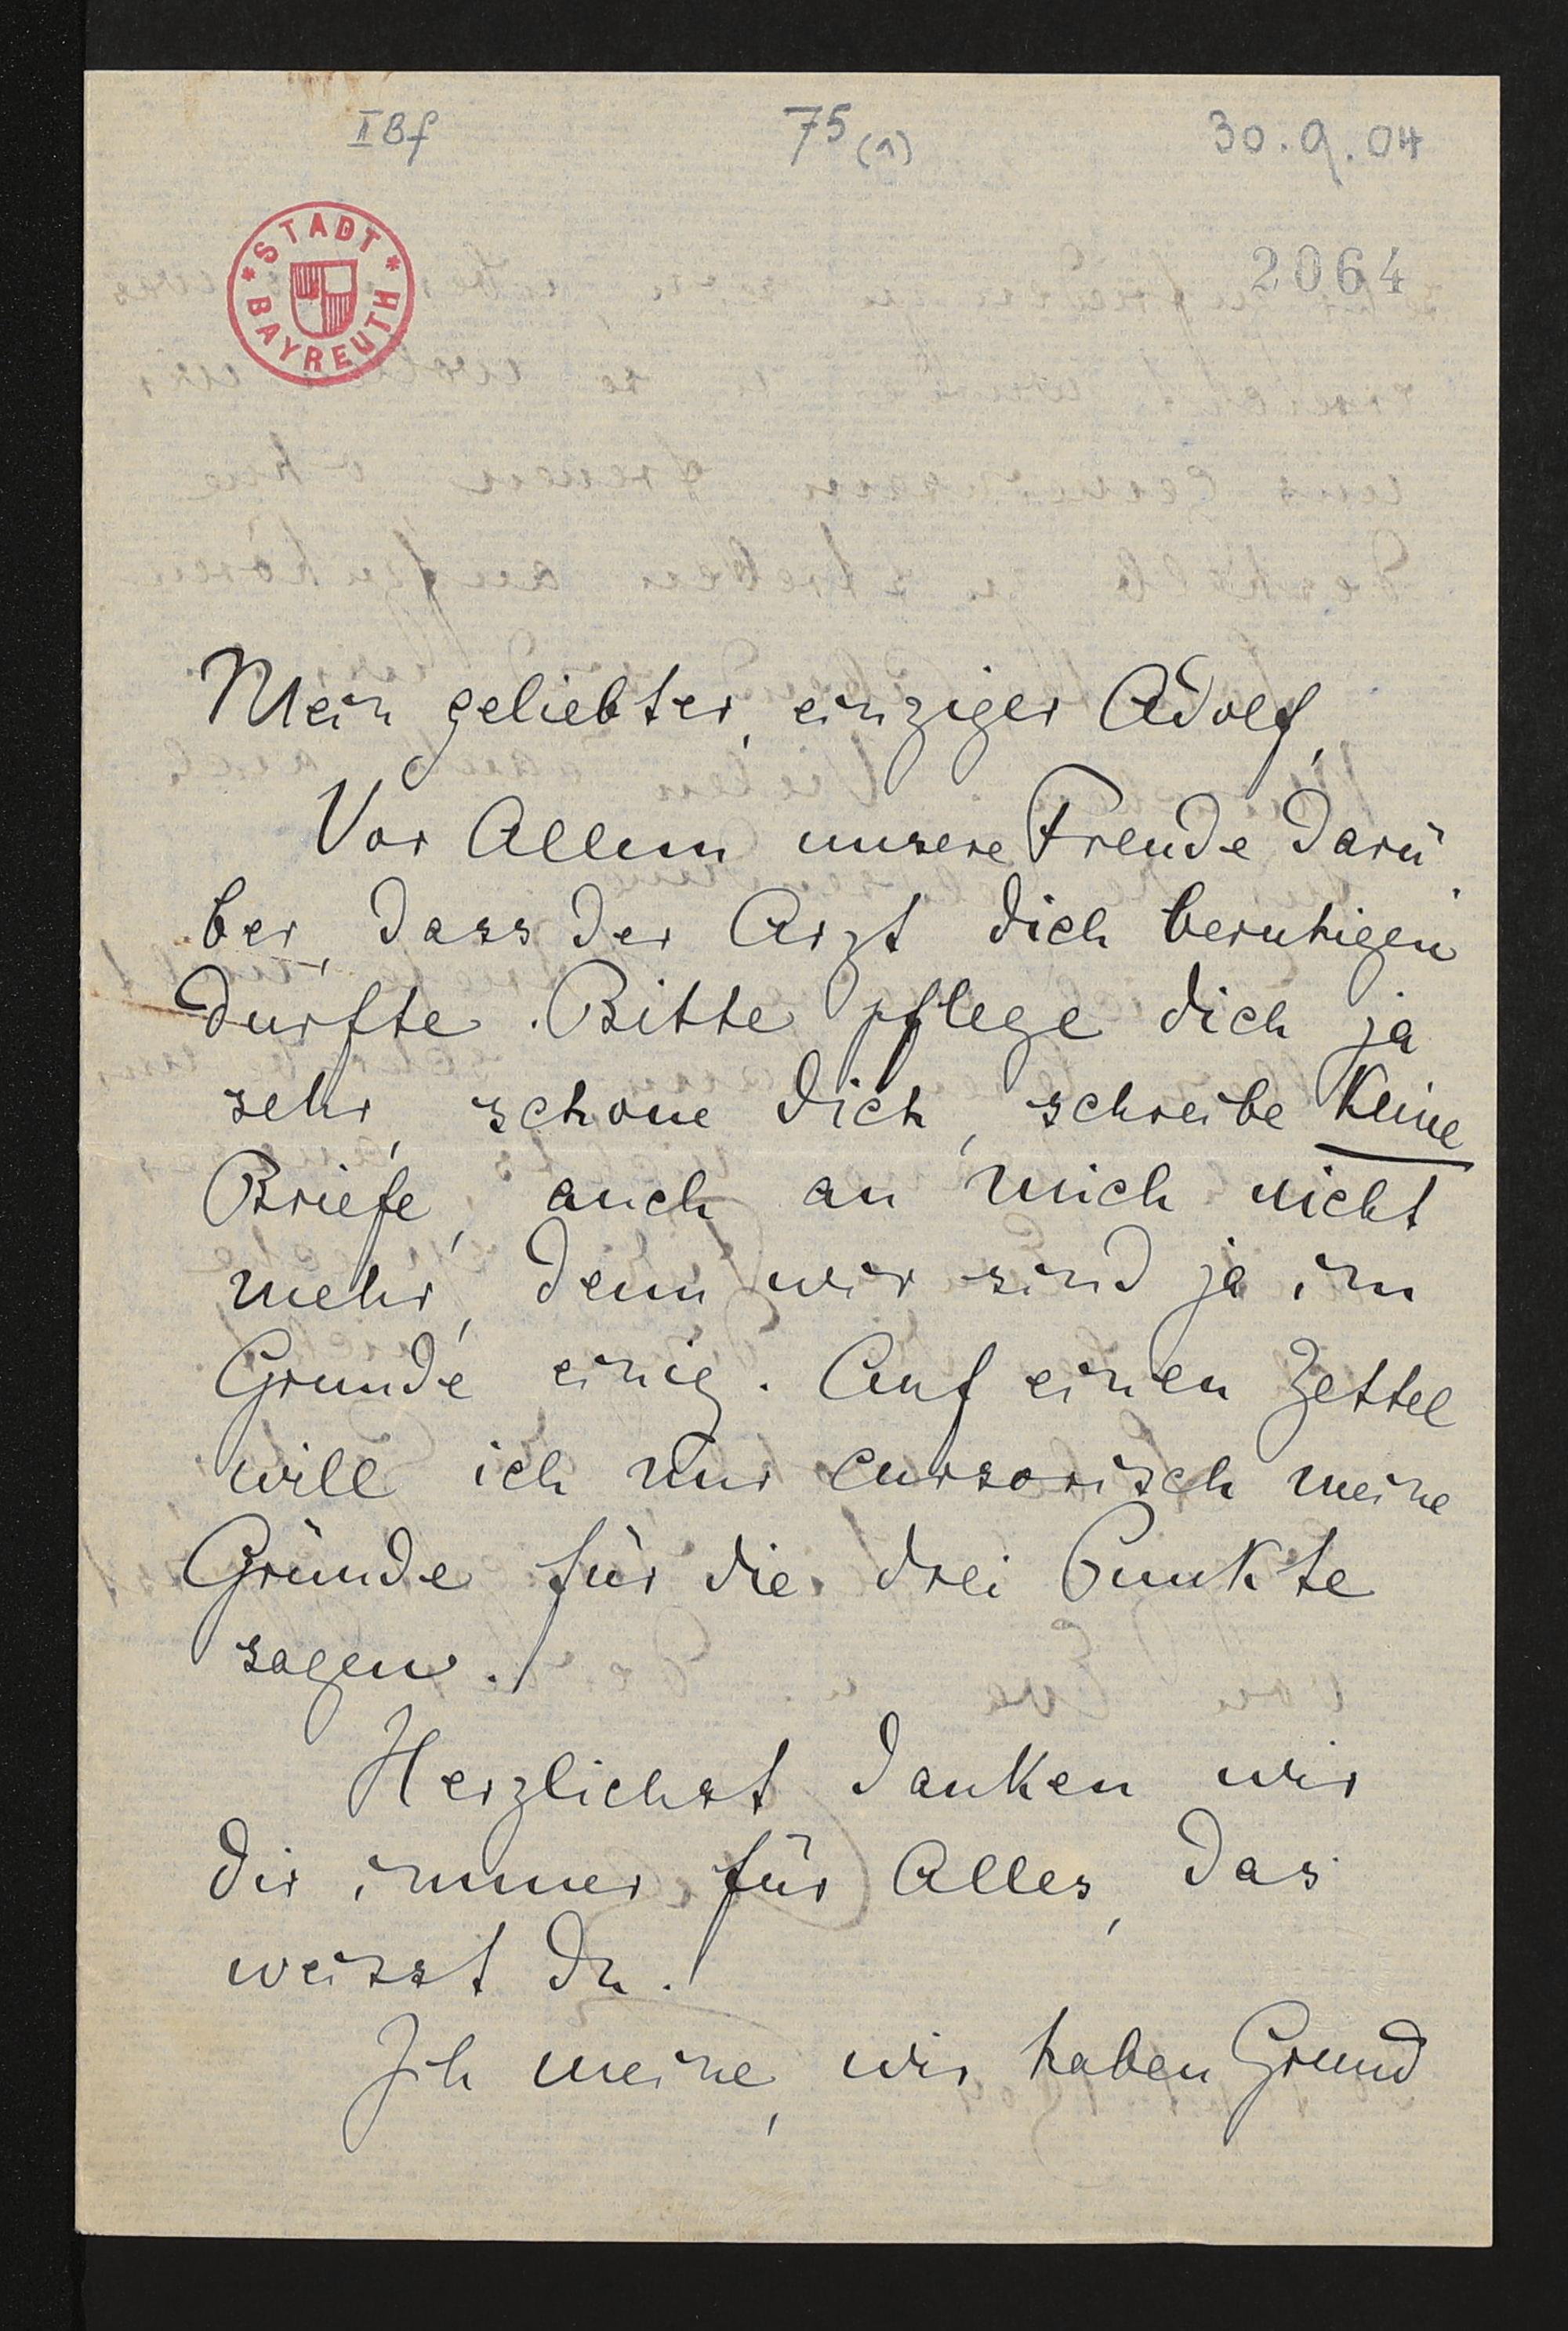 II Bf 75 (1) 30.9.04
* STADT * BAYREUTH
2064
Mein geliebter, einziger Adolf,
Vor Allem unsere Freude darü
ber, dass der Arzt dich beruhigen
durfte. Bitte pflege dich ja
sehr, schone dich, schreibe keine
Briefe, auch an mich nicht
mehr, denn wir sind ja im
Grunde einig. Auf einen Zettel
will ich nur cursorisch meine
Gründe für die drei Punkte
sagen.
Herzlichst danken wir
dir immer für Alles, das
weisst du.
Ich meine, wir haben Grund